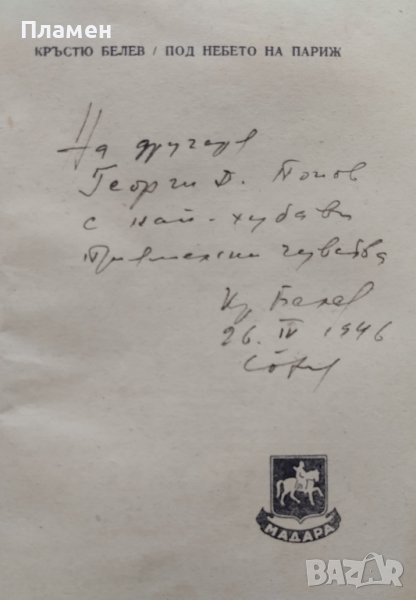 Пламен
КРЪСТЮ БЕЛЕВ / ПОД НЕБЕТО НА ПАРИЖ
На другаря
Георги Д. Попов
с най-хубави
приятелски чувства
Кр. Белев
26. IV 1946
София
МАДАРА
BAZAR.bg